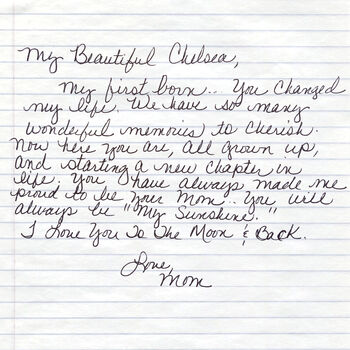 My Beautiful Chelsea,
My first born.. You changed
my life. We have so many
wonderful memories to cherish.
Now here you are, all grown up,
and starting a new chapter in
life. You have always made me
proud to be your Mom.. You will
always be "My Sunshine."
I Love You To The Moon & Back.
Love,
Mom